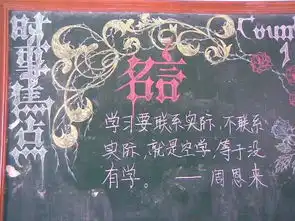 名言
Count
1
学习要联系实际,不联系
实际,就是空学,等于没
有学。——周恩来